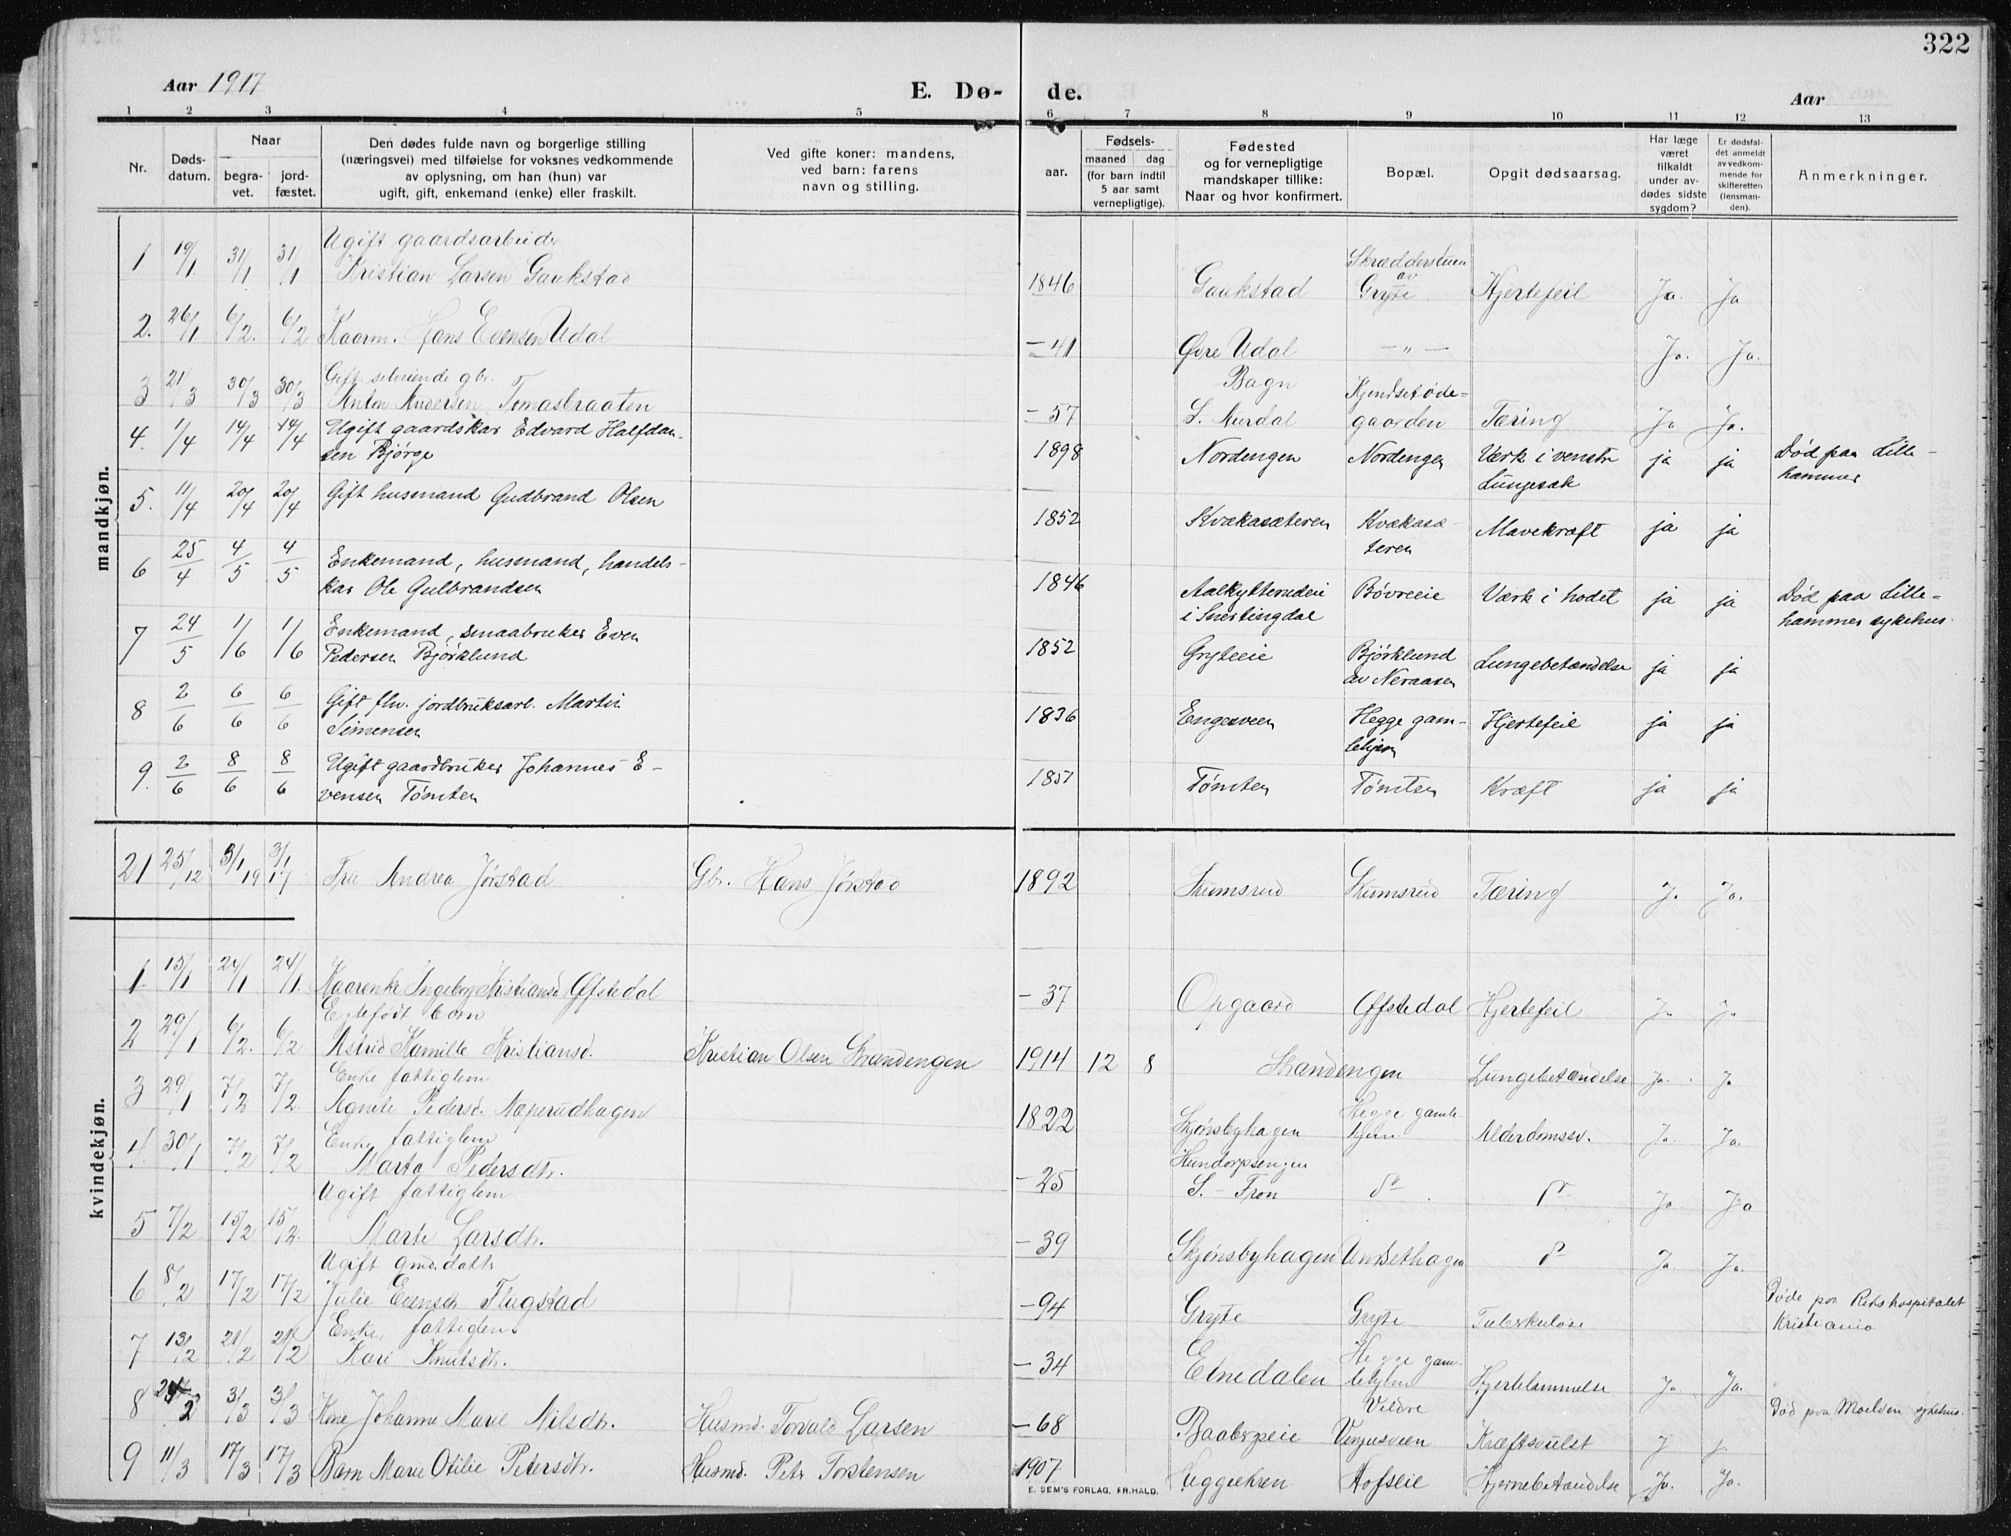 322
Aar 1917
E. Dø- de.
Aar
1 2 3 4 5 6 7 8 9 10 11 12 13
Nr.
Døds-
datum.
Naar
begra-
vet.
jord-
fæstet.
Den dødes fulde navn og borgerlige stilling
(næringsvei) med tilføielse for voksnes vedkommende
av oplysning, om han (hun) var
ugift, gift, enkemand (enke) eller fraskilt.
Ved gifte koner: mandens,
ved barn: farens
navn og stilling.
aar.
Fødsels-
maaned dag
(for barn indtil
5 aar samt
vernepligtige).
Fødested
og for vernepligtige
mandskaper tillike:
Naar og hvor konfirmert.
Bopæl.
Opgit dødsaarsag.
Har læge
været
tilkaldt
under av-
dødes sidste
sygdom?
Er dødsfal-
det anmeldt
av vedkom-
mende for
skifteretten
(lensman-
den).
Anmerkninger.
mandkjøn.
Ugift gaardsarbeid. Skrædderstuen
1 19/1 31/1 31/1 Kristian Larsen Gaukstad 1846 Gaukstad av Gryte Hjertefeil Ja. Ja
2. 26/1 6/2. 6/2 Kaarm. Hans Evensen Udal —41 Øvre Udal —„— Ja. Ja.
Gift selveiende gbr. Bagn Kjendsetøde-
3 21/3 30/3 30/3 Anton Andersen Tomasbraaten —57 S. Aurdal gaarden Tæring Ja Ja.
4. 1/4 14/4 14/4 Ugift gaardskar Edvard Halfdan- 1898 Nordengen Nordengen Værk i venstre ja ja Død paa Lille-
sen Bjørge Lungesæk hammer
5. 11/4 20/4 20/4 Gift husmand Gudbrand Olsen 1852 Kvækasæteren Kvækasæ- Mavekræft ja ja
teren
6 25/4 4/5 4/5 Enkemand, husmand, handels- 1846 Aalkytterudeie Bøvreeie Værk i hodet ja ja Død paa Lille-
kar Ole Gulbrandsen i Snertingdal hammer sykehus.
7 24/5 1/6 1/6 Enkemand, smaabruker Even 1852 Gryteeie Bjørklund Lungebetændelse ja ja
Pedersen Bjørklund av Neraasen
8 2/6 6/6 6/6 Gift fhv. jordbruksarb. Martin 1836 Engesveen Hegge gam- Hjertefeil ja ja
Simensen lehjem
9. 2/6 8/6 8/6 Ugift gaardbruker Johannes E- 1851 Tømten Tømten Kræft ja ja
vensen Tømten
21 25/12 3/1 19 3/1 17 Fru Andrea Jørstad Gbr. Hans Jørstad 1892 Skumsrud Skumsrud Tæring Ja. Ja.
kvindekjøn.
1. 15/1 24/1 24/1. Kaarenke Ingeborg Kristiansd. Øfstedal —37 Opgaard Øfstedal Hjertefeil Ja Ja
Egtefødt barn
2 29/1 6/2. 6/2 Astrid Kamille Kristiansd. Kristian Olsen Strandengen 1914 12 8 Strandengen Lungebetændelse Ja. Ja
Enke fattiglem
3 29/1 7/2 7/2. Agnete Pedersd. Næperudhagen 1822 Skjønsbyhagen Hegge gamle Alderdomssv. Ja. Ja.
hjem
Enke fattiglem Hundorpsengen
4. 30/1 7/2 7/2 Marta Pedersdtr. —25 S.-Fron do do Ja. Ja
Ugift fattiglem
5 7/2 15/2 15/2. Marte Larsdtr. —39 Skjønsbyhagen Undsethagen do Ja. Ja.
Ugift gmd.dattr
6 8/2 17/2 17/2 Julie Evensdtr Flugstad —94 Gryte Gryte Tuberkulose Døde paa Rikshospitalet
Kristiania
Enke, fattiglem
7 13/2 21/2 21/2 Kari Knutsdtr. —34 Etnedalen Hegge gam- Hjertelammelse Ja. Ja.
lehjem
8 24/2 3/3 3/3 Kone Johanne Marie Nilsdtr. Husmd. Torvald Larsen —68 Baabergeie Veldre Kræftsvulst J J. Død paa Moelven sykehus.
9 11/3 17/3 17/3 Barn Marie Otilie Petersdtr. Husmd. Petr Torstensen 1907 Heggeekren Hofseie Hjernebetændelse Ja. Ja.
E. SEM'S FORLAG, FR.HALD.